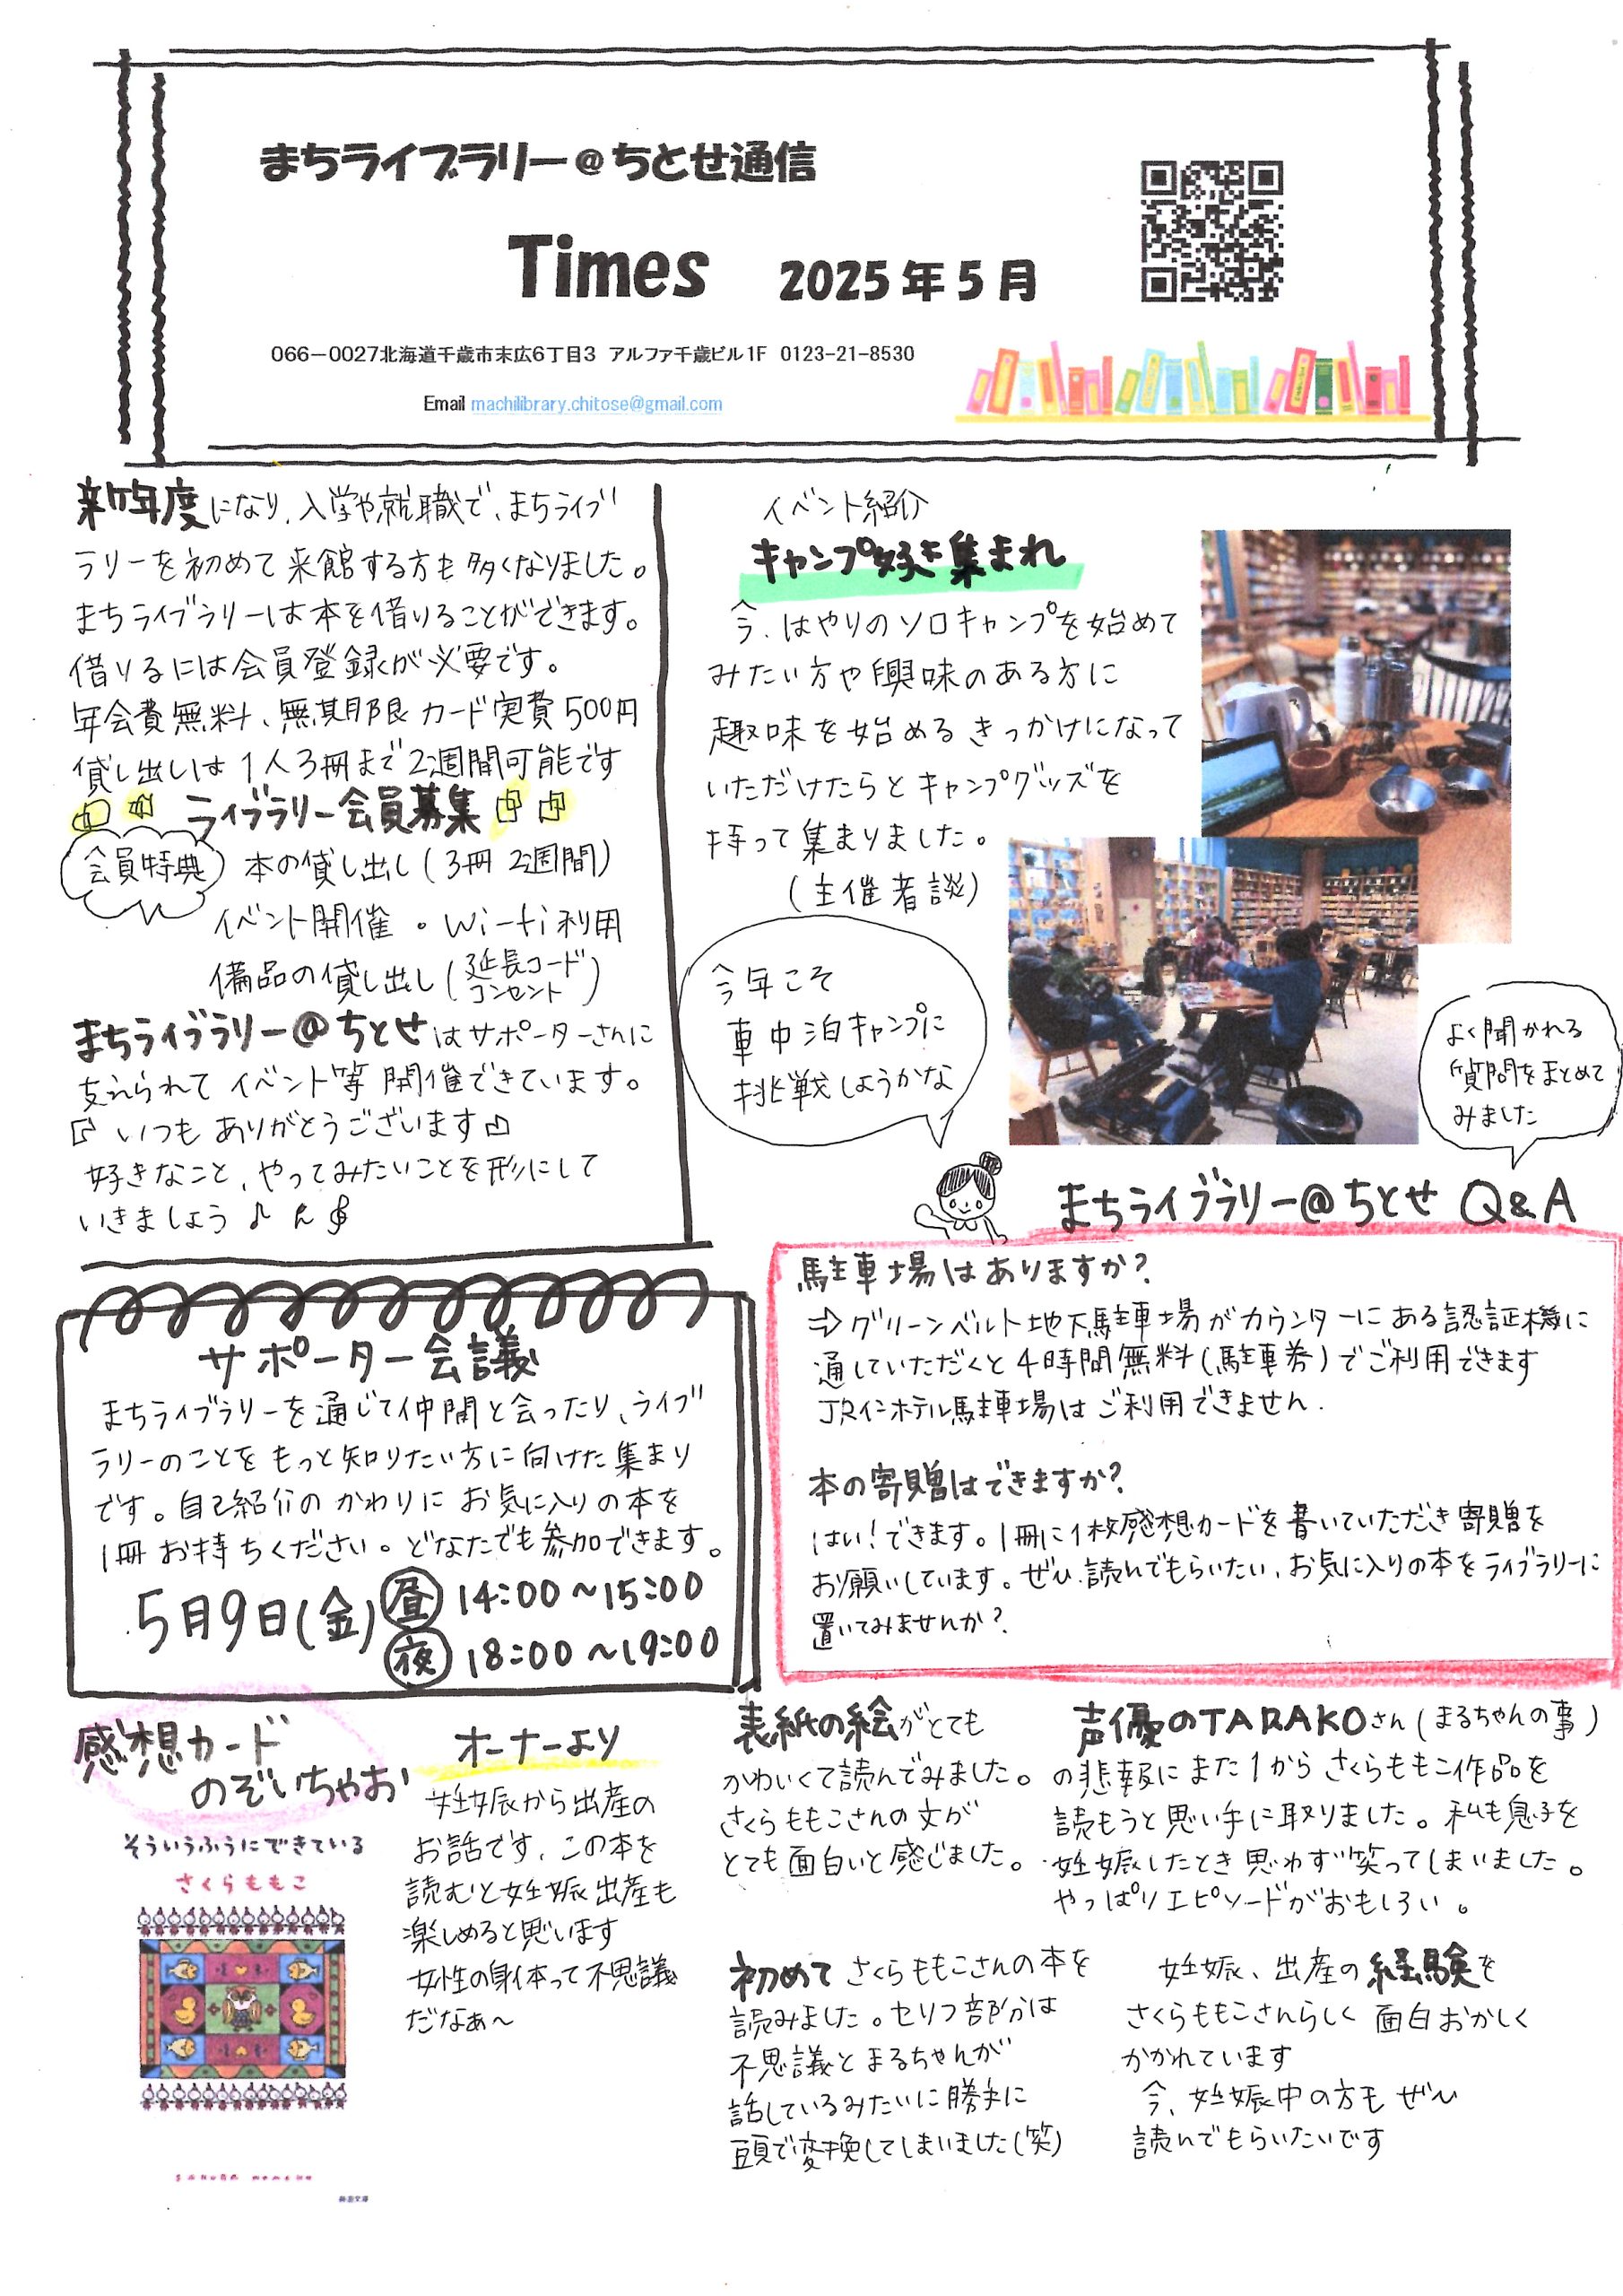 まちライブラリー@ちとせ通信
Times 2025年5月
066-0027北海道千歳市末広6丁目3 アルファ千歳ビル1F 0123-21-8530
Email machilibrary.chitose@gmail.com
新年度になり、入学や就職で、まちライブ
ラリーを初めて来館する方も多くなりました。
まちライブラリーは本を借りることができます。
借りるには会員登録が必要です。
年会費無料、無期限カード実費500円
貸し出しは1人3冊まで2週間可能です
ライブラリー会員募集
会員特典 本の貸し出し(3冊2週間)
イベント開催・Wi-fi利用
備品の貸し出し(延長コード
コンセント)
まちライブラリー@ちとせはサポーターさんに
支えられてイベント等開催できています。
いつもありがとうございます
好きなこと、やってみたいことを形にして
いきましょう♪
イベント紹介
キャンプ好き集まれ
今、はやりのソロキャンプを始めて
みたい方や興味のある方に
趣味を始めるきっかけになって
いただけたらとキャンプグッズを
持って集まりました。
(主催者談)
今年こそ
車中泊キャンプに
挑戦しようかな
よく聞かれる
質問をまとめて
みました
まちライブラリー@ちとせ Q&A
駐車場はありますか?
⇒グリーンベルト地下駐車場がカウンターにある認証機に
通していただくと4時間無料(駐車券)でご利用できます
JRインホテル駐車場はご利用できません.
本の寄贈はできますか?
はい!できます。1冊に1枚感想カードを書いていただき寄贈を
お願いしています。ぜひ、読んでもらいたい、お気に入りの本をライブラリーに
置いてみませんか?
サポーター会議
まちライブラリーを通じて仲間と会ったり、ライブ
ラリーのことをもっと知りたい方に向けた集まり
です。自己紹介のかわりにお気に入りの本を
1冊お持ちください。どなたでも参加できます。
5月9日(金) 昼 14:00~15:00
夜 18:00~19:00
感想カード
のぞいちゃお
そういうふうにできている
さくらももこ
SAKURA MOMOKO
新潮文庫
オーナーより
妊娠から出産の
お話です、この本を
読むと妊娠出産も
楽しめると思います
女性の身体って不思議
だなぁ~
表紙の絵がとても
かわいくて読んでみました。
さくらももこさんの文が
とても面白いと感じました。
声優のTARAKOさん(まるちゃんの事)
の悲報にまた1からさくらももこ作品を
読もうと思い手に取りました。私も息子を
妊娠したとき思わず笑ってしまいました。
やっぱりエピソードがおもしろい。
初めてさくらももこさんの本を
読みました。セリフ部分は
不思議とまるちゃんが
話しているみたいに勝手に
頭で変換してしまいました(笑)
妊娠、出産の経験を
さくらももこさんらしく面白おかしく
かかれています
今、妊娠中の方もぜひ
読んでもらいたいです